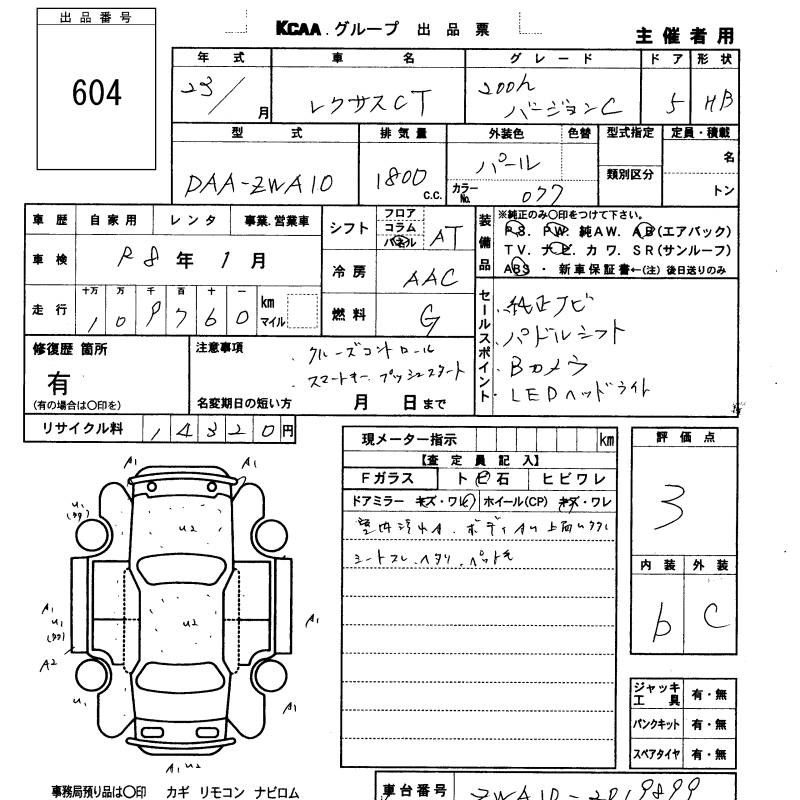 出品番号
604
KCAA.グループ 出品票
主催者用
年式 車名 グレード ドア 形状
23/ 月 レクサスCT 200h バージョンC 5 HB
型式 排気量 外装色 色替 型式指定 定員・積載
DAA-ZWA10 1800 C.C. パール 類別区分 名
カラーNo. 077 トン
車歴 自家用 レンタ 事業.営業車
シフト フロア コラム パネル AT
装備品 ※純正のみ○印をつけて下さい。
P.S. P.W. 純AW. AB(エアバック)
TV. ナビ カワ. SR(サンルーフ)
ABS ・ 新車保証書←(注)後日送りのみ
車検 R8年1月
冷房 AAC
走行 十万 万 千 百 十 一
109760 km マイル
燃料 G
セールスポイント
・純正ナビ
・パドルシフト
・Bカメラ
・LEDヘッドライト
修復歴 箇所
有
(有の場合は○印を)
注意事項
・クルーズコントロール
・スマートキー.プッシュスタート
名変期日の短い方 月 日まで
リサイクル料 14320円
現メーター指示 km
【査定員記入】
Fガラス ト ビ 石 ヒビワレ
ドアミラー キズ・ワレ ホイール(CP) キズ・ワレ
シートスレ.ヘタリ.
評価点
3
内装 外装
b C
A1 A1
U2
U2
A1
U1
A2
A1
U1
A1
A1 U2
ジャッキ工具 有・無
パンクキット 有・無
スペアタイヤ 有・無
事務局預り品は○印 カギ リモコン ナビロム
車台番号 ZWA10-2019899